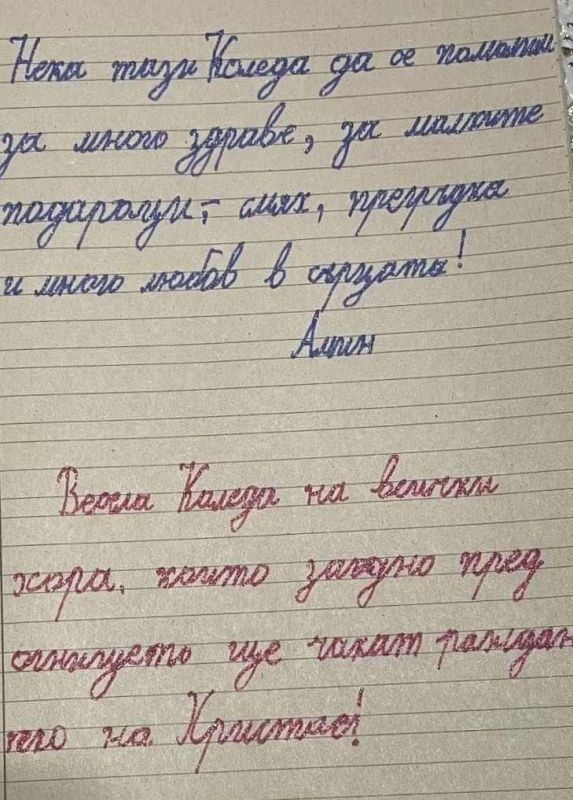 Нека тази Коледа да се помолим
за много здраве, за малките
подаръци, - смях, прегръдка
и много любов в сърцата!
Алпин
Весела Коледа на всички
хора, които заедно пред
огнището ще чакат раждан
ето на Христос!